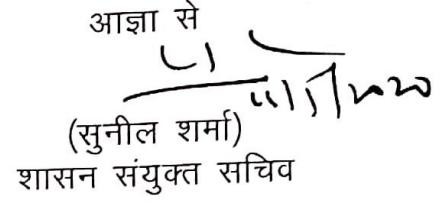 आज्ञा से
(सुनील शर्मा)
शासन संयुक्त सचिव